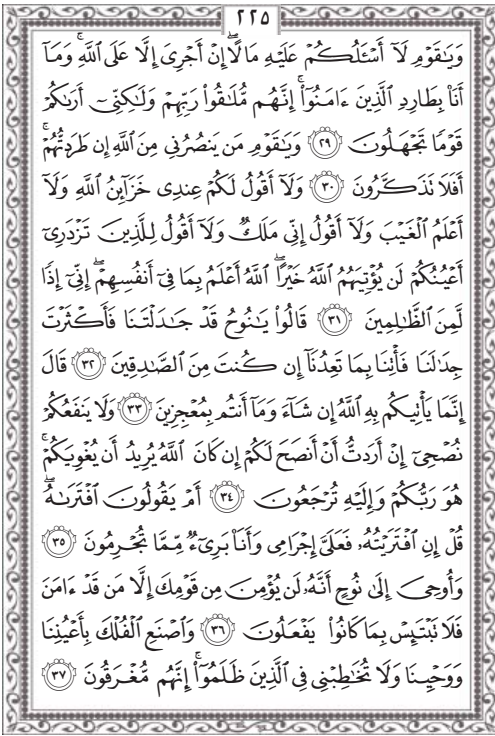 ٢٢٥
وَيَٰقَوْمِ لَآ أَسْـَٔلُكُمْ عَلَيْهِ مَالًا ۖ إِنْ أَجْرِىَ إِلَّا عَلَى ٱللَّهِ ۚ وَمَآ
أَنَا۠ بِطَارِدِ ٱلَّذِينَ ءَامَنُوٓا۟ ۚ إِنَّهُم مُّلَٰقُوا۟ رَبِّهِمْ وَلَٰكِنِّىٓ أَرَىٰكُمْ
قَوْمًا تَجْهَلُونَ ٢٩ وَيَٰقَوْمِ مَن يَنصُرُنِى مِنَ ٱللَّهِ إِن طَرَدتُّهُمْ ۚ
أَفَلَا تَذَكَّرُونَ ٣٠ وَلَآ أَقُولُ لَكُمْ عِندِى خَزَآئِنُ ٱللَّهِ وَلَآ
أَعْلَمُ ٱلْغَيْبَ وَلَآ أَقُولُ إِنِّى مَلَكٌ وَلَآ أَقُولُ لِلَّذِينَ تَزْدَرِىٓ
أَعْيُنُكُمْ لَن يُؤْتِيَهُمُ ٱللَّهُ خَيْرًا ۖ ٱللَّهُ أَعْلَمُ بِمَا فِىٓ أَنفُسِهِمْ ۖ إِنِّىٓ إِذًا
لَّمِنَ ٱلظَّٰلِمِينَ ٣١ قَالُوا۟ يَٰنُوحُ قَدْ جَٰدَلْتَنَا فَأَكْثَرْتَ
جِدَٰلَنَا فَأْتِنَا بِمَا تَعِدُنَآ إِن كُنتَ مِنَ ٱلصَّٰدِقِينَ ٣٢ قَالَ
إِنَّمَا يَأْتِيكُم بِهِ ٱللَّهُ إِن شَآءَ وَمَآ أَنتُم بِمُعْجِزِينَ ٣٣ وَلَا يَنفَعُكُمْ
نُصْحِىٓ إِنْ أَرَدتُّ أَنْ أَنصَحَ لَكُمْ إِن كَانَ ٱللَّهُ يُرِيدُ أَن يُغْوِيَكُمْ ۚ
هُوَ رَبُّكُمْ وَإِلَيْهِ تُرْجَعُونَ ٣٤ أَمْ يَقُولُونَ ٱفْتَرَىٰهُ ۖ
قُلْ إِنِ ٱفْتَرَيْتُهُۥ فَعَلَىَّ إِجْرَامِى وَأَنَا۠ بَرِىٓءٌ مِّمَّا تُجْرِمُونَ ٣٥
وَأُوحِىَ إِلَىٰ نُوحٍ أَنَّهُۥ لَن يُؤْمِنَ مِن قَوْمِكَ إِلَّا مَن قَدْ ءَامَنَ
فَلَا تَبْتَئِسْ بِمَا كَانُوا۟ يَفْعَلُونَ ٣٦ وَٱصْنَعِ ٱلْفُلْكَ بِأَعْيُنِنَا
وَوَحْيِنَا وَلَا تُخَٰطِبْنِى فِى ٱلَّذِينَ ظَلَمُوٓا۟ ۚ إِنَّهُم مُّغْرَقُونَ ٣٧